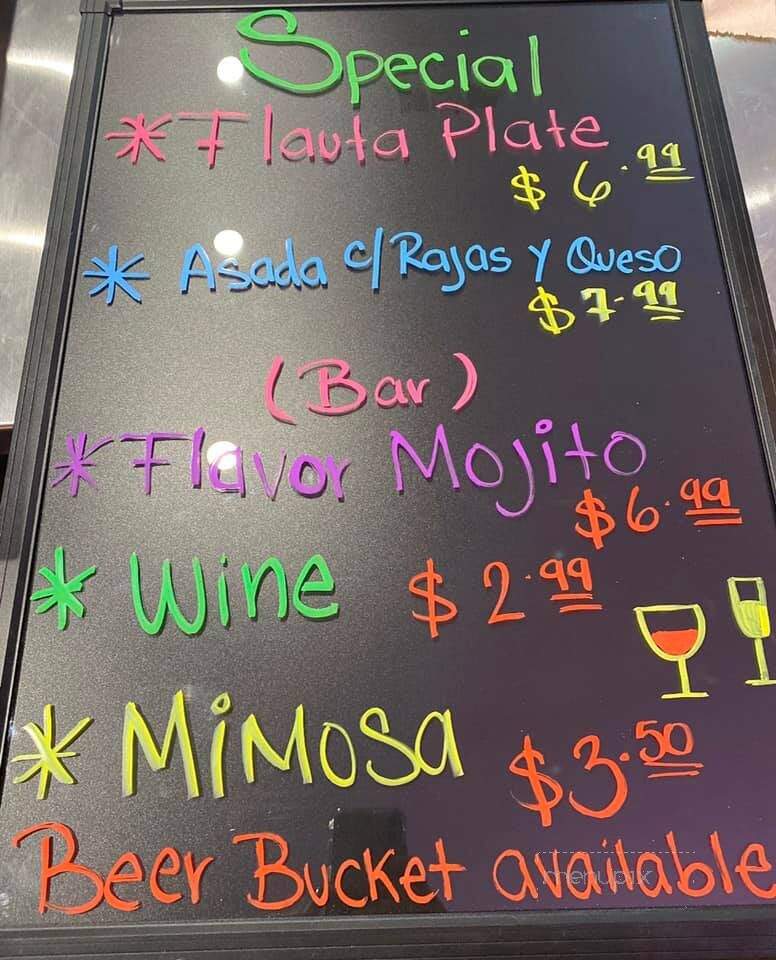 Special
* Flauta Plate
$6.99
* Asada c/Rajas y Queso
$7.99
(Bar)
* Flavor Mojito
$6.99
* Wine $2.99
* MiMosa $3.50
Beer Bucket available
menupix